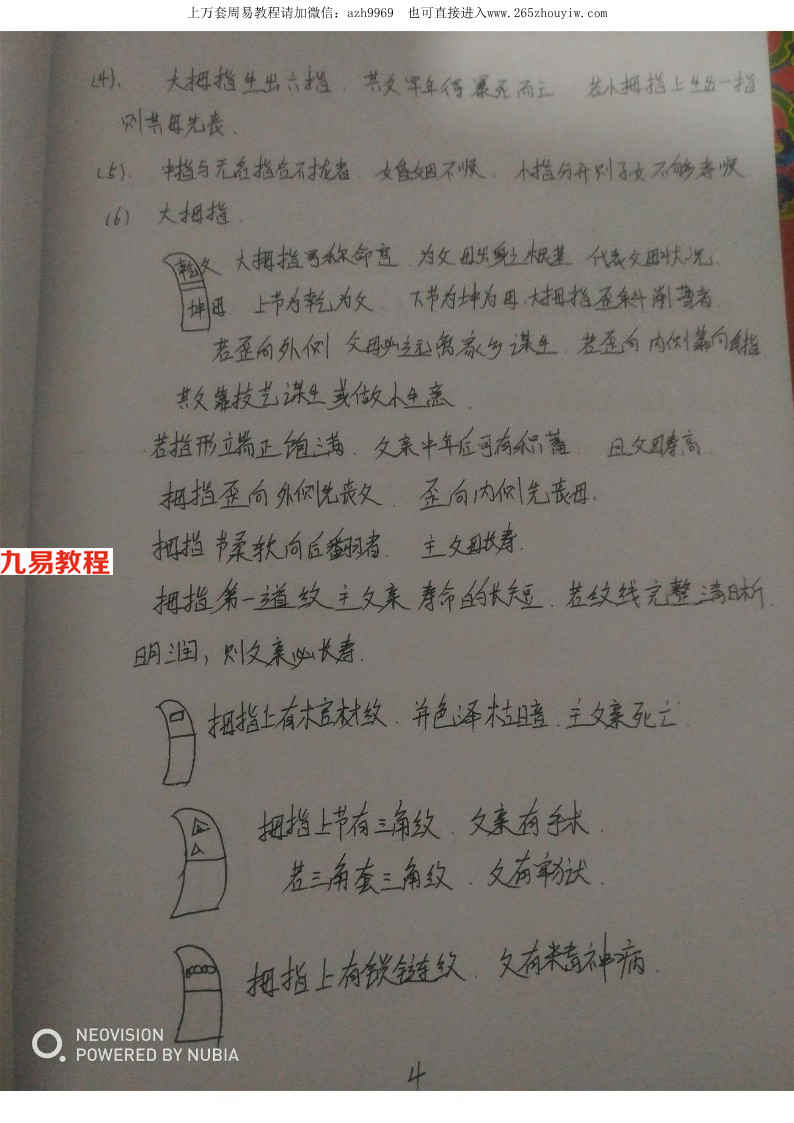 上万套周易教程请加微信：azh9969 也可直接进入www.265zhouyiw.com
(4). 大拇指生出六指，其父早年得暴死而亡 若小拇指上生出一指
则其母先丧、
(5). 中指与无名指合不拢者、婚姻不顺、小指分开则子女不够孝顺
(6) 大拇指.
乾 父 大拇指可称命宫、为父母出身之根基 代表父母状况.
坤 母 上节为乾为父 下节为坤为母.大拇指歪斜削薄者
若歪向外侧 父母必远离家乡谋生、若歪向内侧靠向食指
其父靠技艺谋生或做小生意、
若指形立端正饱满、父亲中年后可有积蓄 且父母寿高
拇指歪向外侧先丧父、歪向内侧先丧母.
拇指节柔软向后翻者、主父母长寿.
拇指第一道纹主父亲寿命的长短、若纹线完整清晰、
明润，则父亲必长寿.
拇指上有棺材纹、并色泽枯暗、主父亲死亡
拇指上节有三角纹、父亲有手术.
若三角套三角纹、父有牢狱.
拇指上有锁链纹、父有精神病.
九易教程
NEOVISION
POWERED BY NUBIA
4